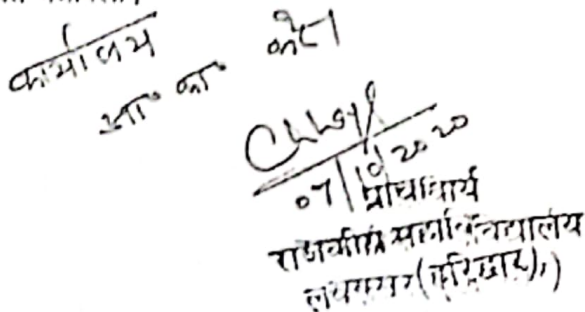 कार्यालय
आ० का० करें।
07/10/2020
प्राचार्य
राजकीय महाविद्यालय
(हरिद्वार)